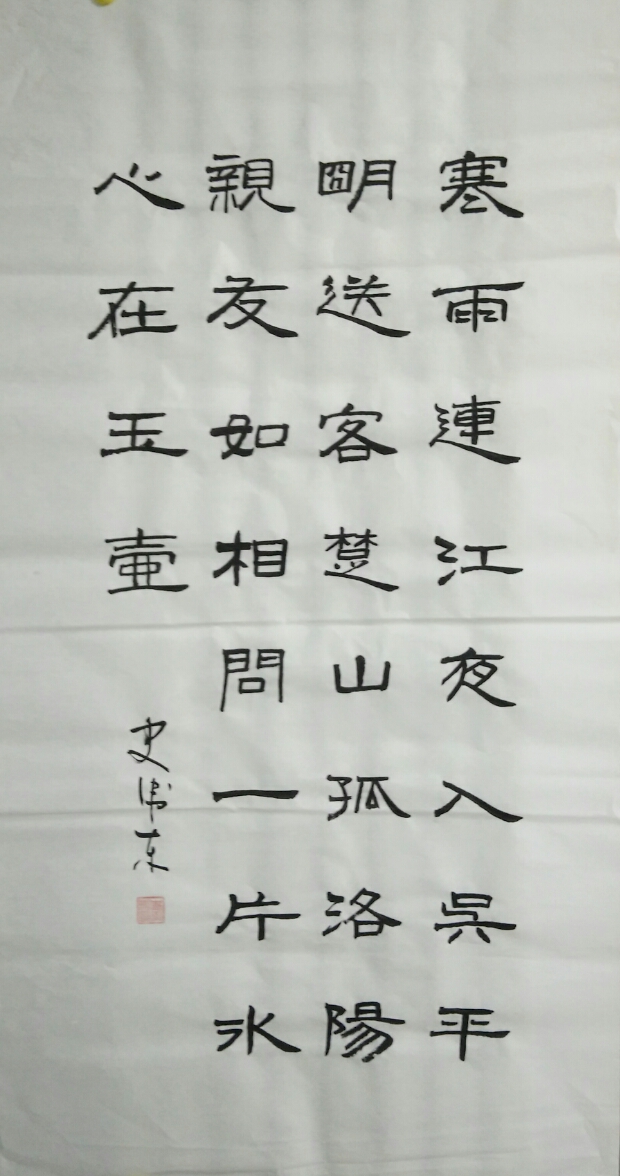 寒雨連江夜入吳平
明送客楚山孤洛陽
親友如相問一片氷
心在玉壺
史偉东